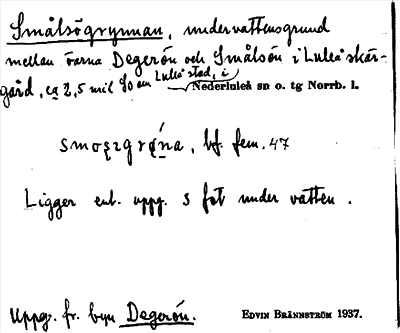 Smålsögrynnan, undervattensgrund
mellan öarna Degerön och Smålsön i Luleå skär-
gård, ca 2,5 mil SO om Luleå stad, i Nederluleå sn o. tg Norrb. l.
bf. fem. 47
Ligger enl. uppg. 3 fot under vatten.
Uppg. fr. byn Degerön.
EDVIN BRÄNNSTRÖM 1937.